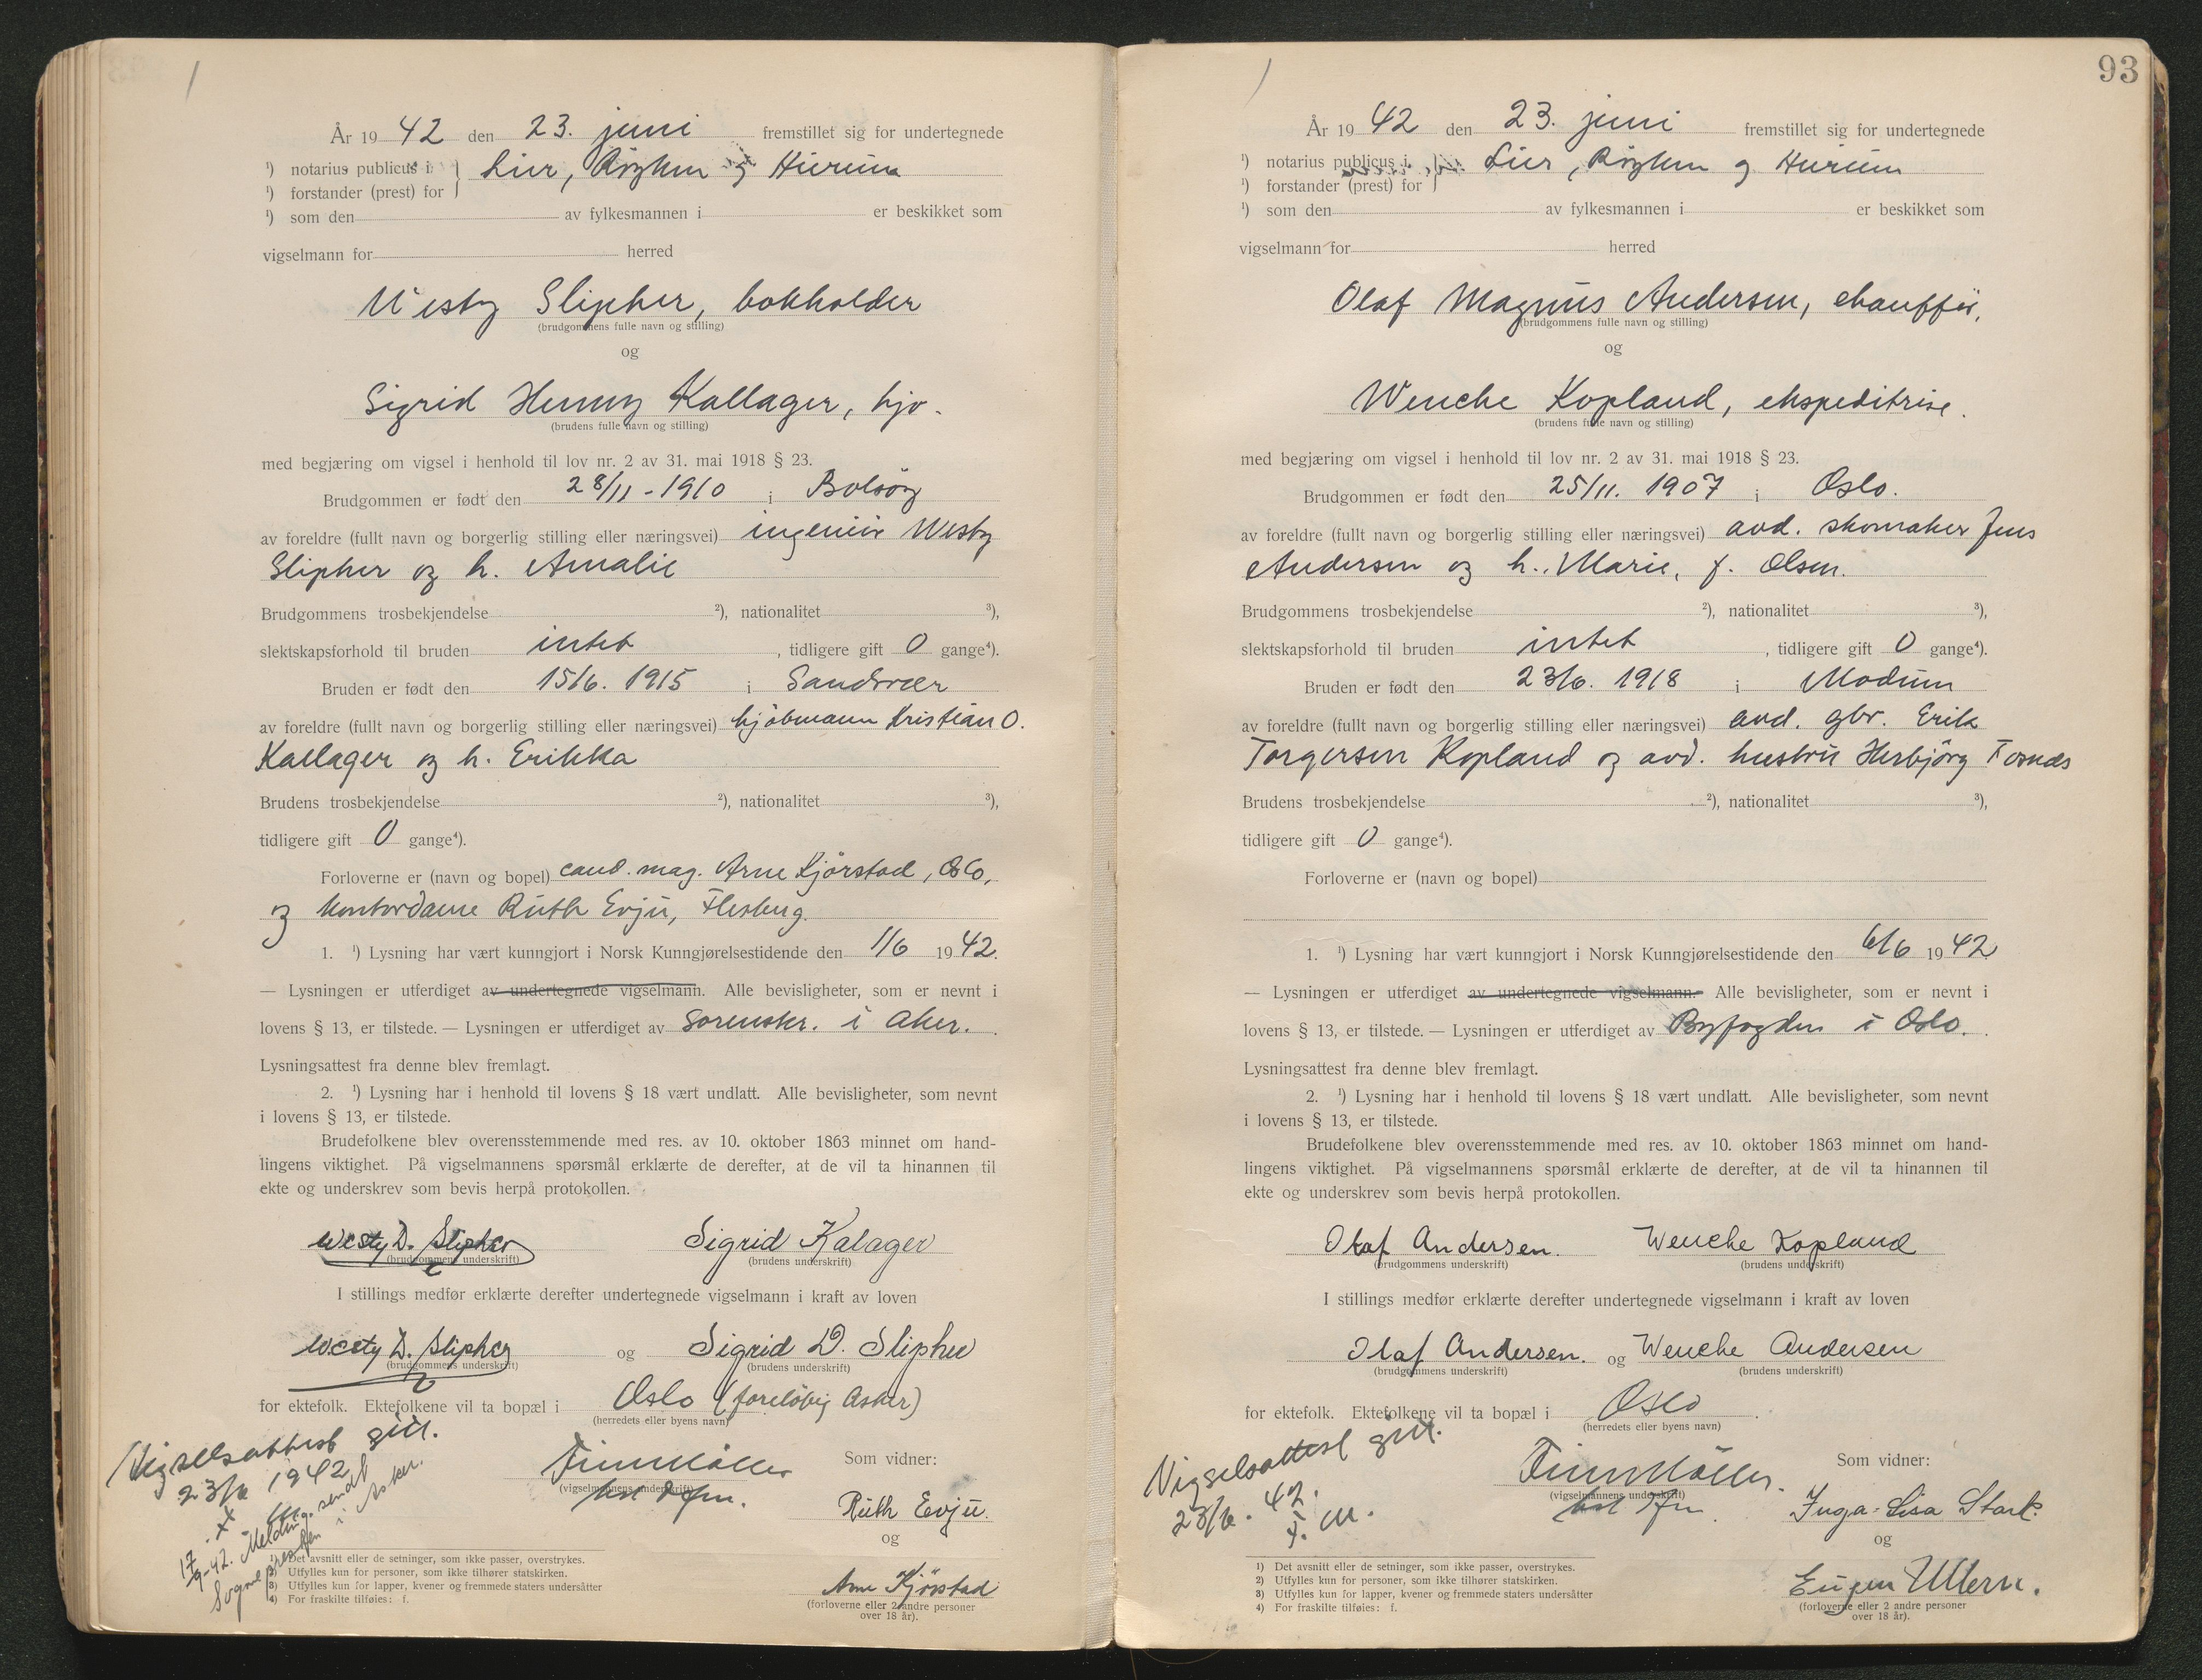 År 1942 den 23. juni fremstillet sig for undertegnede
¹) notarius publicus i } Lier, Røyken og Hurum
¹) forstander (prest) for
¹) som den av fylkesmannen i er beskikket som
vigselmann for herred
Westy Slipher, bokholder
(brudgommens fulle navn og stilling)
og
Sigrid Henny Kallager, hjv.
(brudens fulle navn og stilling)
med begjæring om vigsel i henhold til lov nr. 2 av 31. mai 1918 § 23.
Brudgommen er født den 28/11-1910 i Bolsöy
av foreldre (fullt navn og borgerlig stilling eller næringsvei) ingeniör Westy
Slipher og h. Amalie
Brudgommens trosbekjendelse ²), nationalitet ³),
slektskapsforhold til bruden intet, tidligere gift 0 gange⁴).
Bruden er født den 15/6. 1915 i Sandsvær
av foreldre (fullt navn og borgerlig stilling eller næringsvei) kjöbmann Kristian O.
Kallager og h. Erikka
Brudens trosbekjendelse ²), nationalitet ³),
tidligere gift 0 gange⁴).
Forloverne er (navn og bopel) cand. mag. Arne Kjörstad, Oslo,
og kontordame Ruth Evju, Flesberg.
1. ¹) Lysning har vært kunngjort i Norsk Kunngjørelsestidende den 1/6 1942.
— Lysningen er utferdiget av undertegnede vigselmann. Alle bevisligheter, som er nevnt i
lovens § 13, er tilstede. — Lysningen er utferdiget av Sorenskr. i Aker.
Lysningsattest fra denne blev fremlagt.
2. ¹) Lysning har i henhold til lovens § 18 vært undlatt. Alle bevisligheter, som nevnt
i lovens § 13, er tilstede.
Brudefolkene blev overensstemmende med res. av 10. oktober 1863 minnet om hand-
lingens viktighet. På vigselmannens spørsmål erklærte de derefter, at de vil ta hinannen til
ekte og underskrev som bevis herpå protokollen.
Westy D. Slipher Sigrid Kalager
(brudgommens underskrift) (brudens underskrift)
I stillings medfør erklærte derefter undertegnede vigselmann i kraft av loven
Westy D. Slipher og Sigrid D. Slipher
(brudgommens underskrift) (brudens underskrift)
for ektefolk. Ektefolkene vil ta bopæl i Oslo (foreløbig Asker)
(herredets eller byens navn)
Vigselsattest gitt.
23/6 1942
17/9-42. Melding sendt
Sognepresten i Asker.
Finn Møller Som vidner:
(vigselmannens underskrift)
Ruth Evju.
og
Arne Kjörstad
(forloverne eller 2 andre personer
over 18 år).
¹) Det avsnitt eller de setninger, som ikke passer, overstrykes.
²) Utfylles kun for personer, som ikke tilhører statskirken.
³) Utfylles kun for lapper, kvener og fremmede staters undersåtter
⁴) For fraskilte tilføies: f.
93
År 1942 den 23. juni fremstillet sig for undertegnede
¹) notarius publicus i } Lier, Røyken og Hurum
¹) forstander (prest) for
¹) som den av fylkesmannen i er beskikket som
vigselmann for herred
Olaf Magnus Andersen, chauffør.
(brudgommens fulle navn og stilling)
og
Wenche Kopland, ekspeditrise.
(brudens fulle navn og stilling)
med begjæring om vigsel i henhold til lov nr. 2 av 31. mai 1918 § 23.
Brudgommen er født den 25/11. 1907 i Oslo.
av foreldre (fullt navn og borgerlig stilling eller næringsvei) avd. skomaker Jens
Andersen og h. Marie, f. Olsen.
Brudgommens trosbekjendelse ²), nationalitet ³),
slektskapsforhold til bruden intet, tidligere gift 0 gange⁴).
Bruden er født den 23/6. 1918 i Modum
av foreldre (fullt navn og borgerlig stilling eller næringsvei) avd. gbr. Erik
Torgersen Kopland og avd. hustru Herbjörg Tosnæs
Brudens trosbekjendelse ²), nationalitet ³),
tidligere gift 0 gange⁴).
Forloverne er (navn og bopel)
1. ¹) Lysning har vært kunngjort i Norsk Kunngjørelsestidende den 6/6 1942
— Lysningen er utferdiget av undertegnede vigselmann. Alle bevisligheter, som er nevnt i
lovens § 13, er tilstede. — Lysningen er utferdiget av Byfogden i Oslo.
Lysningsattest fra denne blev fremlagt.
2. ¹) Lysning har i henhold til lovens § 18 vært undlatt. Alle bevisligheter, som nevnt
i lovens § 13, er tilstede.
Brudefolkene blev overensstemmende med res. av 10. oktober 1863 minnet om hand-
lingens viktighet. På vigselmannens spørsmål erklærte de derefter, at de vil ta hinannen til
ekte og underskrev som bevis herpå protokollen.
Olaf Andersen. Wenche Kopland
(brudgommens underskrift) (brudens underskrift)
I stillings medfør erklærte derefter undertegnede vigselmann i kraft av loven
Olaf Andersen. og Wenche Andersen
(brudgommens underskrift) (brudens underskrift)
for ektefolk. Ektefolkene vil ta bopæl i Oslo.
(herredets eller byens navn)
Vigselsattest gitt.
23/6. 42.
Finn Møller. Som vidner:
(vigselmannens underskrift)
Inga-Lisa Stark.
og
Eugen Ullern.
(forloverne eller 2 andre personer
over 18 år).
1) Det avsnitt eller de setninger, som ikke passer, overstrykes.
2) Utfylles kun for personer, som ikke tilhører statskirken.
3) Utfylles kun for lapper, kvener og fremmede staters undersåtter
4) For fraskilte tilføies: f.